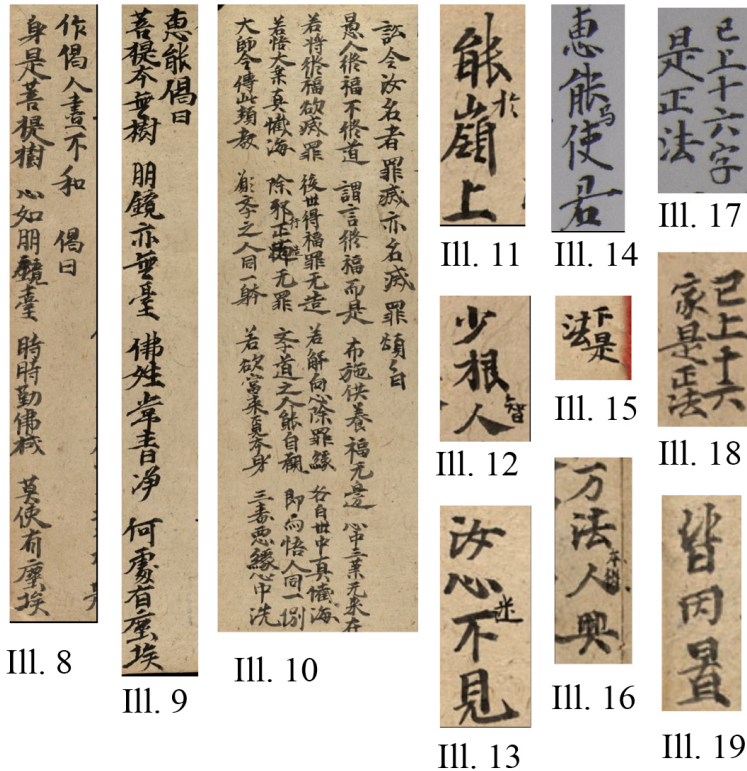 作偈人盡不和 偈曰
身是菩提樹 心如明鏡臺 時時勤佛拭 莫使有塵埃
Ill. 8
惠能偈曰
菩提本無樹 明鏡亦無臺 佛姓常青淨 何處有塵埃
Ill. 9
今汝名者罪滅亦名滅罪頌曰
愚人修福不修道 謂言修福而是 布施供養福无邊 心中三業无來在
若將修福欲滅罪 後世得福罪无造 若解向心除罪緣 各自世中真懺海
若悟大乘真懺海 除邪行正无罪 學道之人能自觀 即悟人同一例
大師令傳此頓教 願學之人同一躰 若欲當來覓本身 三毒惡緣心中洗
Ill. 10
能於嶺上
Ill. 11
少根智人
Ill. 12
汝心迷不見
Ill. 13
惠能与使君
Ill. 14
下是
法
Ill. 15
万法本從人興
Ill. 16
已上十六字
是正法
Ill. 17
已上十六
家是正法
Ill. 18
皆因置
Ill. 19